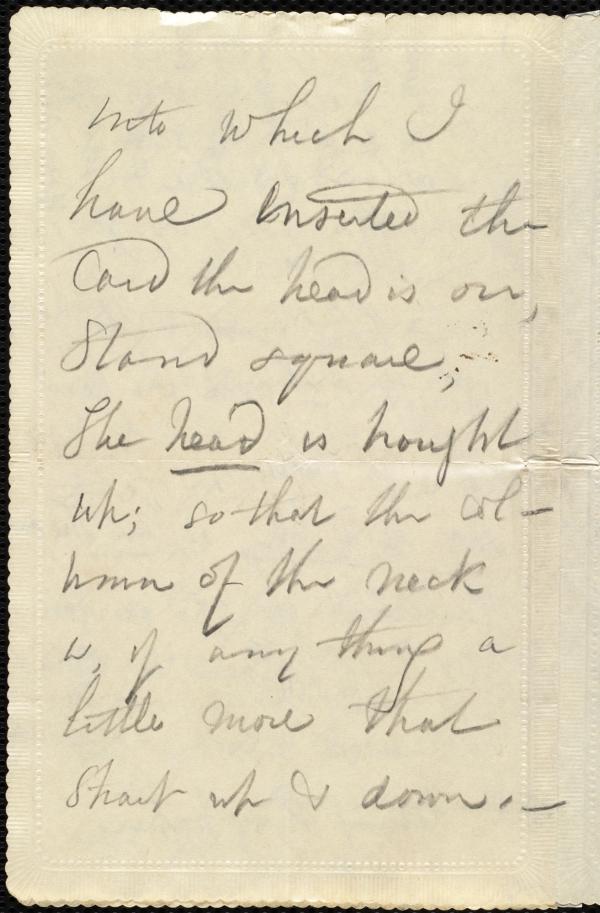 into which I
have inserted the
Card the head is on,
Stand square,
The head is brought
up; so that the col-
umn of the neck
is, if any thing a
little more that
Strait up & down. —